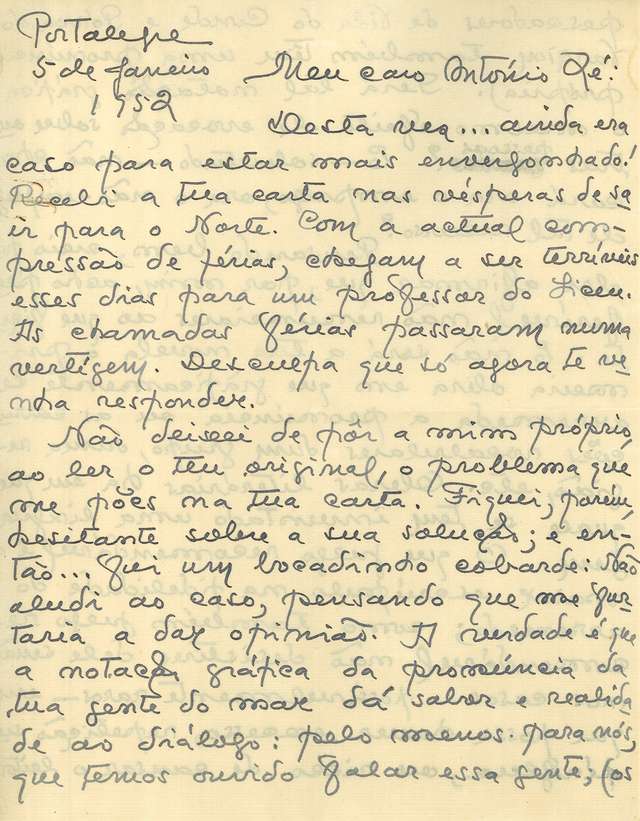 Portalegre
5 de Janeiro Meu caro António Zé:
1952
Desta vez... ainda era
caso para estar mais envergonhado!
Recebi a tua carta nas vésperas de sa-
ir para o Norte. Com a actual com-
pressão de férias, chegam a ser terríveis
esses dias para um professor do Liceu.
As chamadas férias passaram numa
vertigem. Desculpa que só agora te ve-
nha responder.
Não deixei de pôr a mim próprio,
ao ler o teu original, o problema que
me pões na tua carta. Fiquei, porém,
hesitante sobre a sua solução; e en-
tão... fui um bocadinho cobarde: Não
aludi ao caso, pensando que me fur-
taria a dar opinião. A verdade é que
a notação gráfica da pronúncia da
tua gente do mar dá sabor e realida-
de ao diálogo: pelo menos para nós,
que temos ouvido falar essa gente; (os